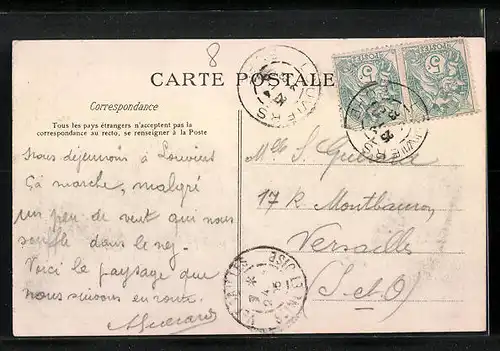 8
CARTE POSTALE
Correspondance
Tous les pays étrangers n'acceptent pas la
correspondance au recto, se renseigner à la Poste
Nous déjeunons à Louviers
Ça marche, malgré
un peu de vent qui nous
souffle dans le nez.
Voici le paysage que
nous suivons en route.
Mlle S.
17 R Montbauron
Versailles
(S-et-O)
LOUVIERS
LOUVIERS
VERSAILLES
5
5
POSTES